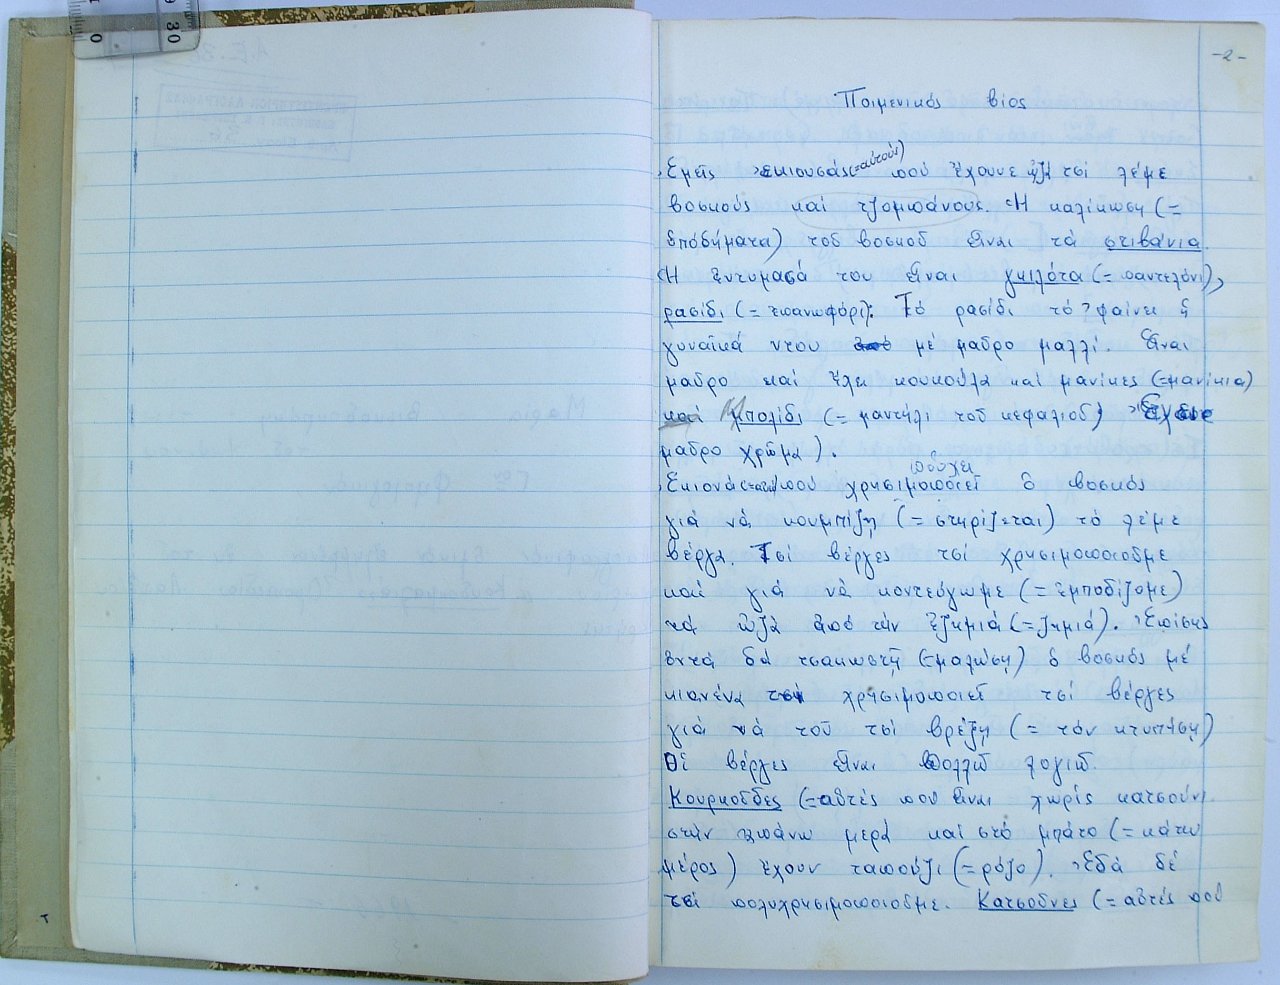 -2-
Ποιμενικός βίος
Ἐμεῖς ἐκιουσάς (=αὐτούς) πού ἔχουνε ὠζά τσί λέμε
βοσκούς καί τζομπάνους. Ἡ καλίκωση (=
ὑποδήματα) τοῦ βοσκοῦ εἶναι τά στιβάνια.
Ἡ ἐντυμασά του εἶναι γκιλότα (= παντελόνι),
ρασίδι (= ἐπανωφόρι). Τό ρασίδι τό φαίνει ἡ
γυναῖκά ντου μέ μαῦρο μαλλί. Εἶναι
μαῦρο καί ἔχει κουκούλα καί μανίκες (=μανίκια)
καί μπολίδι (= μαντήλι τοῦ κεφαλιοῦ) ἔχει
μαῦρο χρῶμα).
Ἐκιονά πού χρησιμοποιεῖ ὁ βοσκός
γιά νά κουμπίζη (= στηρίζεται) τό λέμε
βέργα. Τσί βέργες τσί χρησιμοποιοῦμε
καί γιά νά κοντεύγωμε (= ἐμποδίζομε)
τά ὠζά ἀπό τήν ἐζημιά (= ζημιά). Ἐπίσης
ἐντά δά τσακωστῆ (=μαλώση) ὁ βοσκός μέ
κιανένα χρησιμοποιεῖ τσί βέργες
γιά νά τοῦ τσί βρέξη (= τόν κτυπήση)
Οἱ βέργες εἶναι πολλῶ λογιῶ
Κουρκοῦδες (=αὐτές πού εἶναι χωρίς κατσούνι
στήν ἐπάνω μερά καί στό μπάτο (= κάτω
μέρος) ἔχουν ταπούζι (= ρόζο). Ἐδά δέ
τσί πολυχρησιμοποιοῦμε. Κατσοῦνες (= αὐτές πού